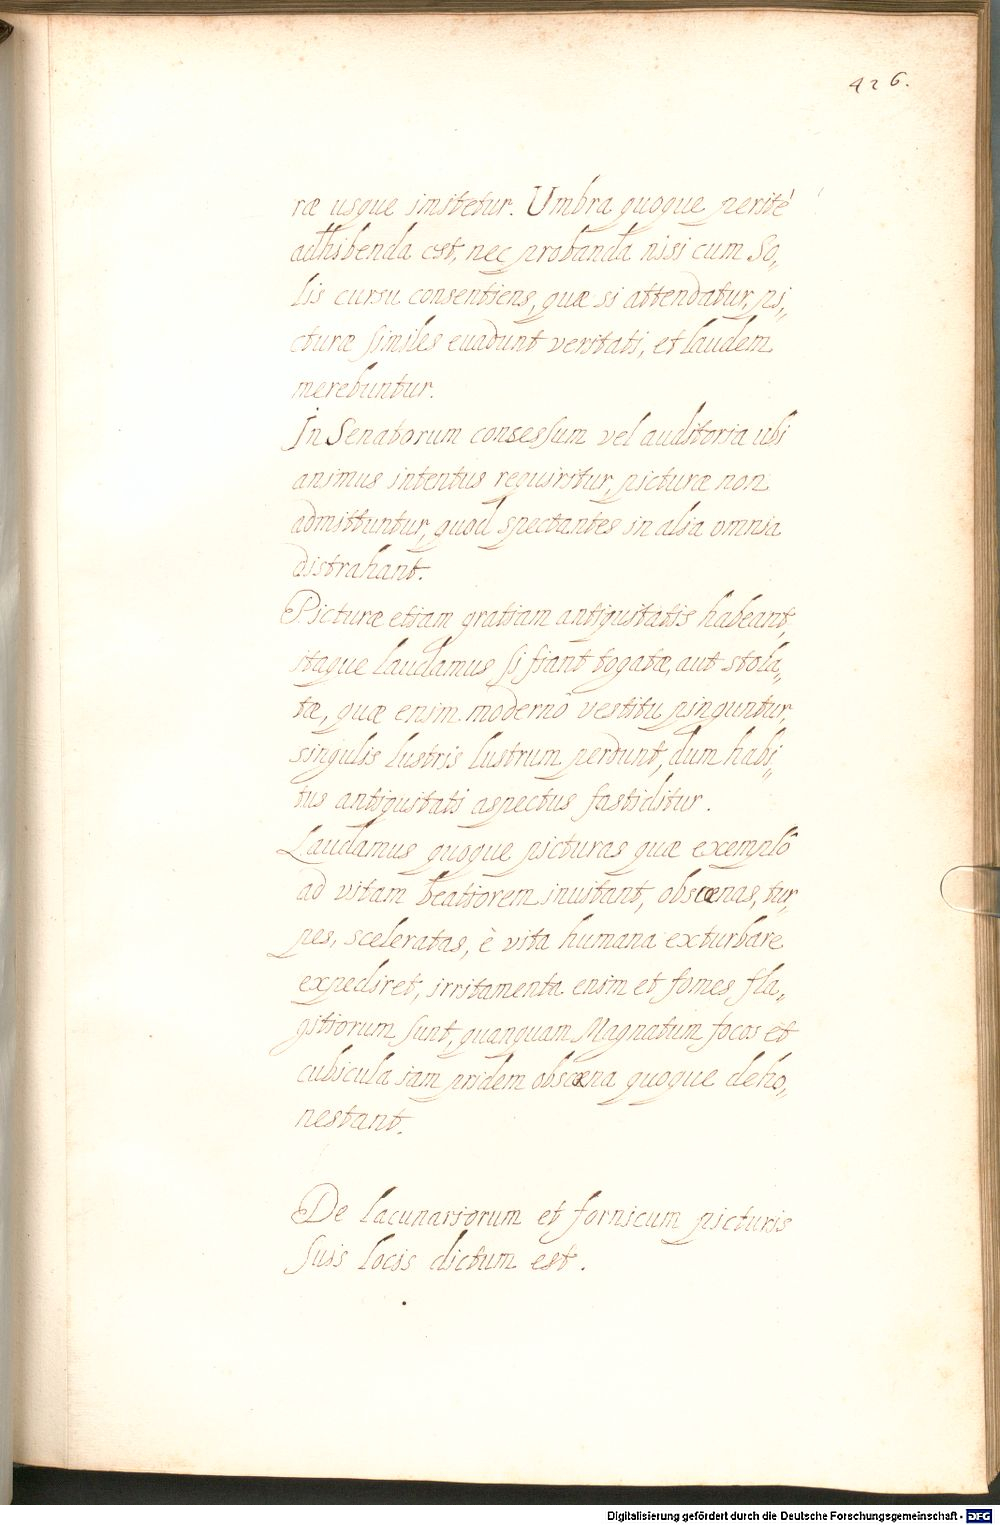 426.
ræ usque imitetur. Umbra quoque peritè
adhibenda est, nec probanda nisi cum So„
lis cursu consentiens, quæ si attendatur, pi„
cturæ similes euadunt veritati, et laudem
merebuntur.
In Senatorum consessum vel auditoria ubi
animus intentus requiritur, picturæ non
admittuntur, quod spectantes in alia omnia
distrahant.
Picturæ etiam gratiam antiquitatis habeant,
itaque laudamus si fiant togatæ, aut stola„
tæ, quæ enim modernô vestitu pinguntur,
singulis lustris lustrum perdunt, dum habi„
tus antiquitati aspectus fastiditur.
Laudamus quoque picturas quæ exemplô
ad vitam beatiorem inuitant, obscœnas, tur„
pes, sceleratas, è vita humana exturbare
expediret, irritamenta enim et fomes fla„
gitiorum sunt, quanquam Magnatum focos et
cubicula iam pridem obscœna quoque deho„
nestant.
De lacunariorum et fornicum picturis
suis locis dictum est.
Digitalisierung gefördert durch die Deutsche Forschungsgemeinschaft - DFG